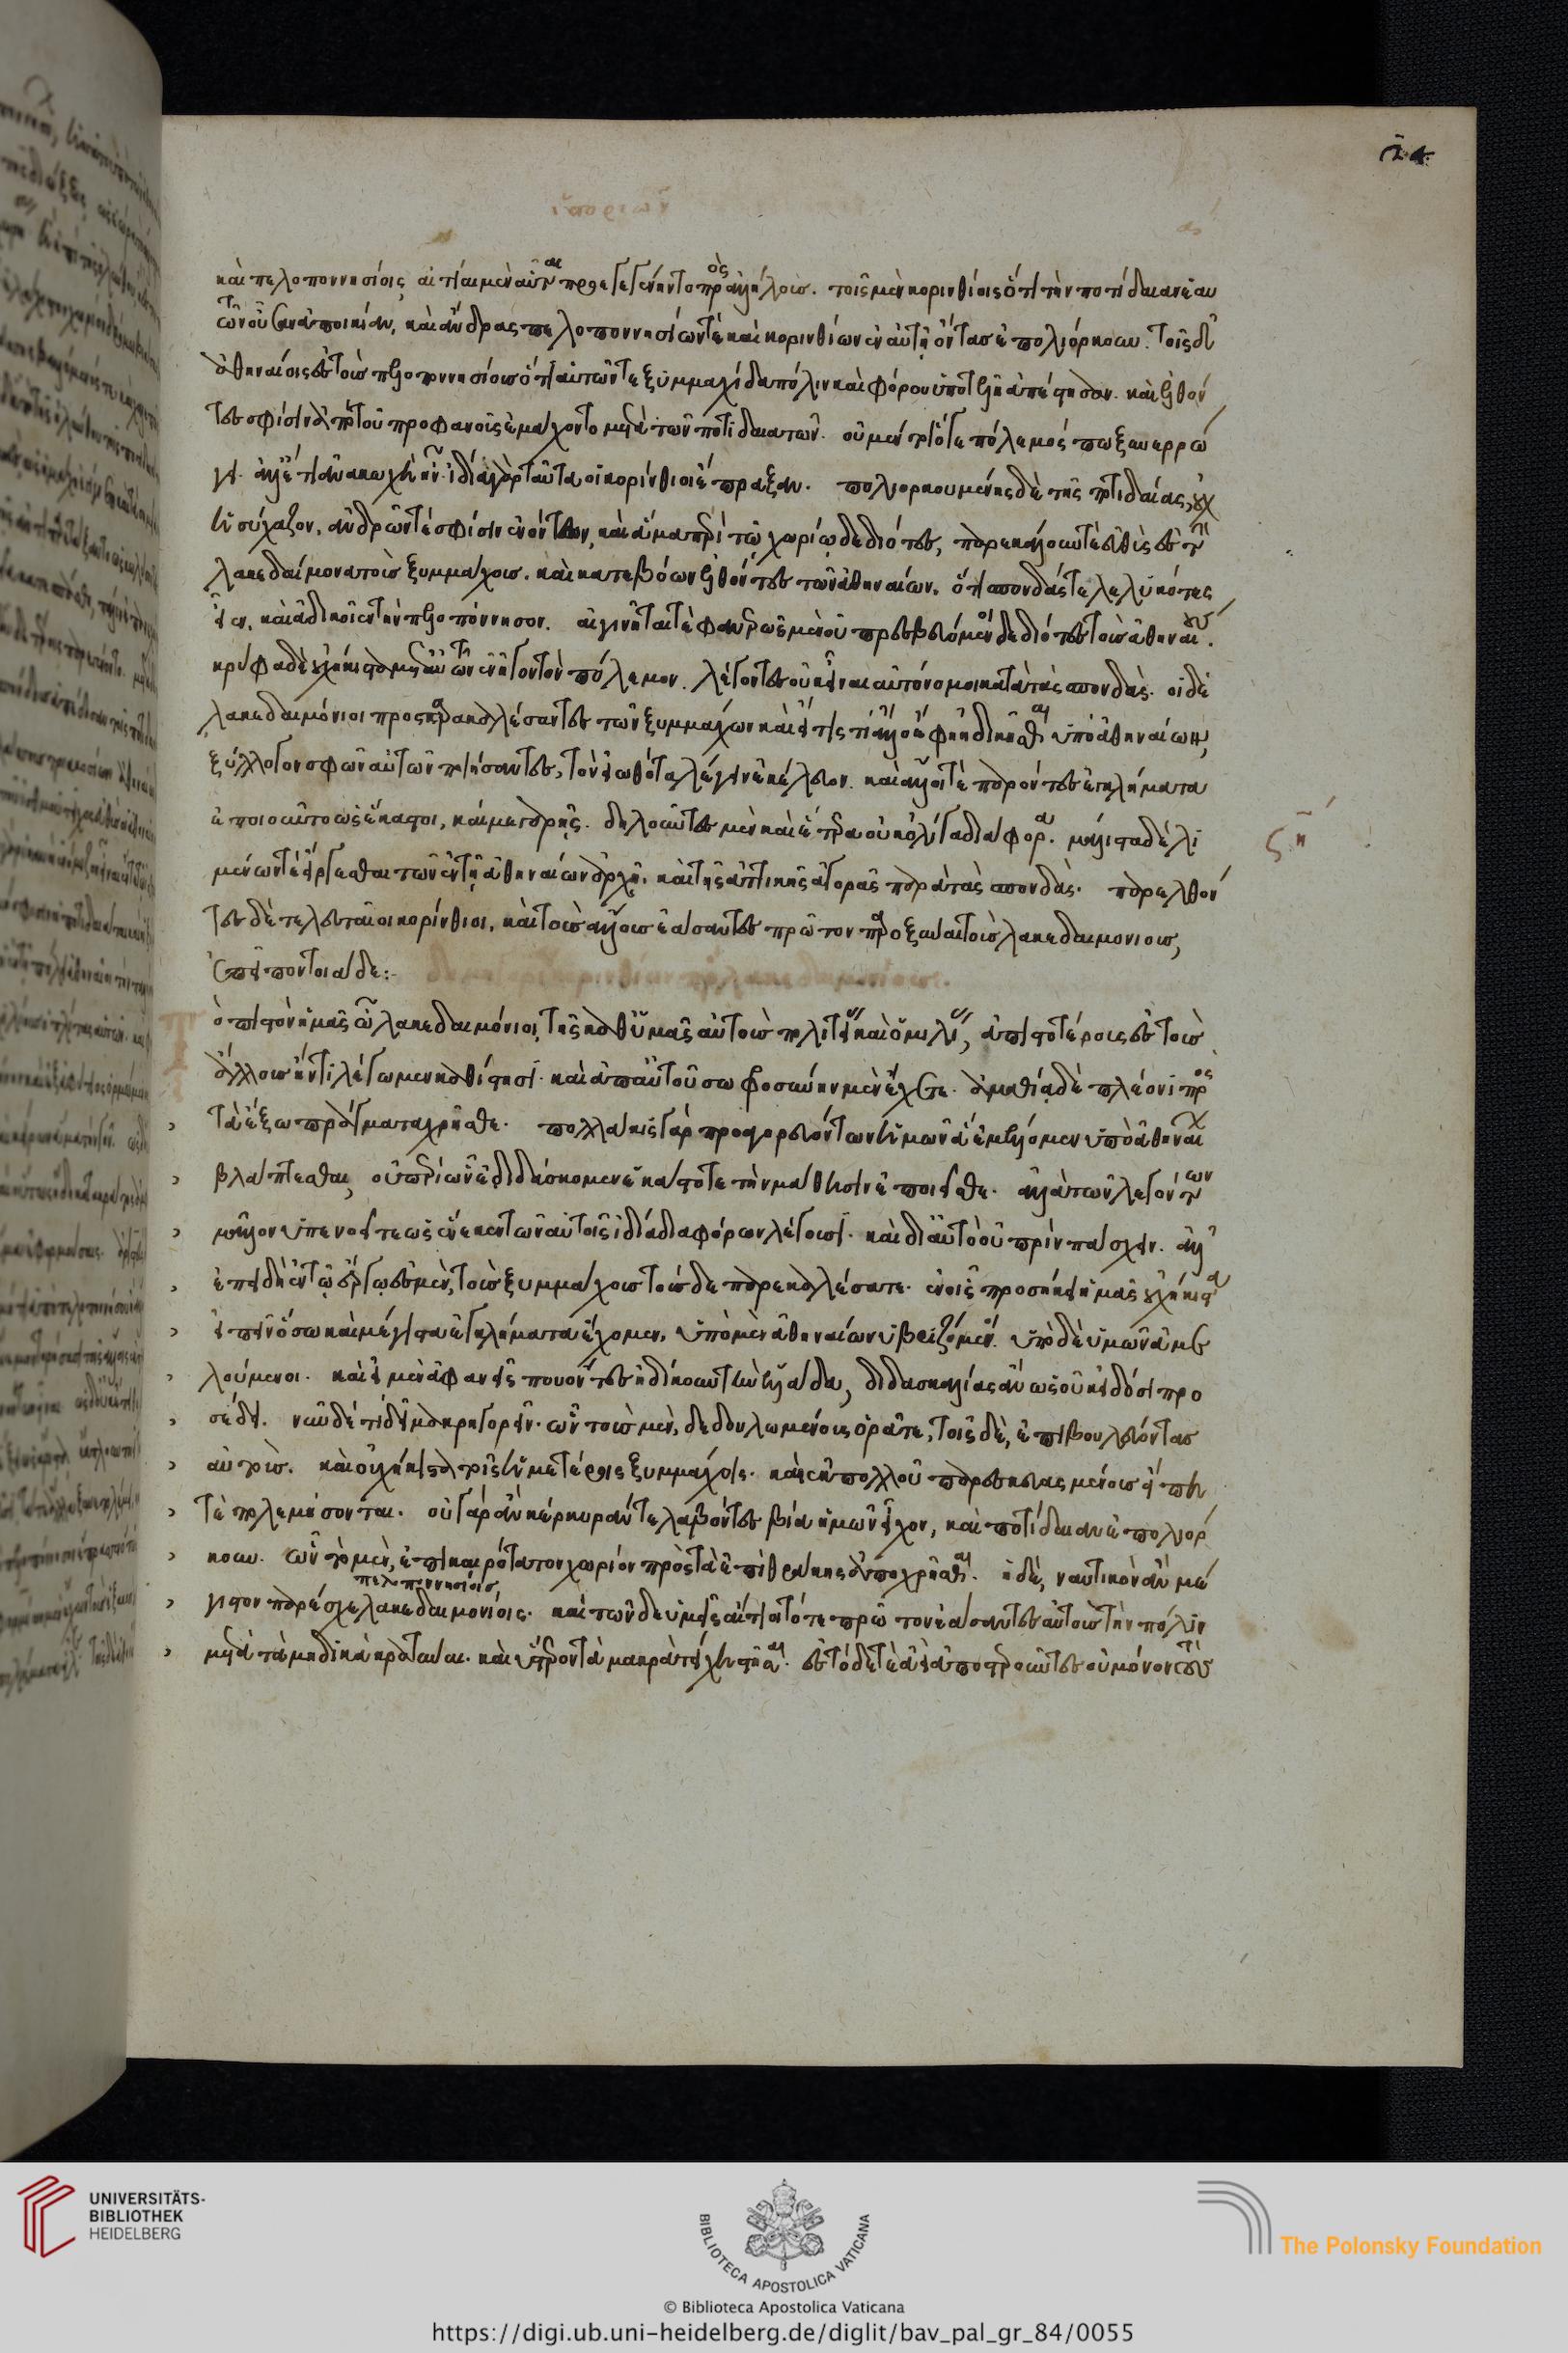 καὶ πελοποννησίοις αἰτίαι μὲν αὗται προεγεγένηντο πρὸς ἀλλήλους. τοῖς μὲν κορινθίοις ὅτι τὴν ποτίδαιαν ἑαυ
τῶν οὖσαν ἀποικίαν, καὶ ἄνδρας πελοποννησίων τὲ καὶ κορινθίων ἐν αὐτῇ ὄντας ἐπολιόρκουν. τοῖς δ'
ἀθηναίοις ἐς τοὺς πελοποννησίους ὅτι αὑτῶν τε ξυμμαχίδα πόλιν καὶ φόρου ὑποτελῆ ἀπέστησαν. καὶ ἐλθόν
τες σφίσιν ἀπὸ τοῦ προφανοῦς ἐμάχοντο μετὰ τῶν ποτιδαιατῶν. οὐ μέντοι ὅγε πόλεμός πω ξυνερρώ
γει. ἀλλ' ἔτι ἀνακωχὴ ἦν. ἰδίᾳ γὰρ ταῦτα οἱ κορίνθιοι ἔπραξαν. πολιορκουμένης δὲ τῆς ποτιδαίας, οὐχ
ἡσύχαζον, ἀνδρῶν τέ σφίσιν ἐνόντων, καὶ ἅμα περὶ τῷ χωρίῳ δεδιότες, παρεκάλουν τὲ εὐθὺς ἐς τὴν
λακεδαίμονα τοὺς ξυμμάχους. καὶ κατεβόων ἐλθόντες τῶν ἀθηναίων. ὅτι σπονδάς τε λελυκότες
εἶεν. καὶ ἀδικοῖεν τὴν πελοπόννησον. αἰγινῆταί τὲ φανερῶς μὲν οὐ πρεσβευόμενοι δεδιότες τοὺς ἀθηναίους.
κρύφα δὲ οὐχ ἥκιστα μετ' αὐτῶν ἐνῆγον τὸν πόλεμον. λέγοντες οὐκ εἶναι αὐτόνομοι κατὰ τὰς σπονδάς. οἱ δὲ
λακεδαιμόνιοι προσπαρακαλέσαντες τῶν ξυμμάχων καὶ εἴ τίς τι ἄλλο ἔφη ἠδικῆσθαι ὑπὸ ἀθηναίων,
ξύλλογον σφῶν αὐτῶν ποιήσαντες, τὸν εἰωθότα λέγειν ἐκέλευον. καὶ ἄλλοι τὲ παρόντες ἐγκλήματα
ἐποιοῦντο ὡς ἕκαστοι, καὶ μεγαρῆς. δηλοῦντες μὲν καὶ ἕτερα οὐκ ὀλίγα διάφορα. μάλιστα δὲ λι
μένων τὲ εἴργεσθαι τῶν ἐν τῇ ἀθηναίων ἀρχῇ. καὶ τῆς ἀττικῆς ἀγορᾶς παρὰ τὰς σπονδάς. παρελθόν
τες δὲ τελευταῖοι κορίνθιοι. καὶ τοὺς ἄλλους ἐάσαντες πρῶτον παροξῦναι τοὺς λακεδαιμονίους,
ἐπεῖπον τοιάδε:
ὸ πιστὸν ἡμᾶς ὦ λακεδαιμόνιοι, τῆς καθ' ὑμᾶς αὐτοὺς πολιτείας καὶ ὁμιλίας, ἀπιστοτέρους ἐς τοὺς
ἄλλους ἤν τι λέγωμεν καθίστησι. καὶ ἀπ' αὐτοῦ σωφροσύνην μὲν ἔχετε. ἀμαθίᾳ δὲ πλέονι πρὸς
τὰ ἔξω πράγματα χρῆσθε. πολλάκις γὰρ προαγορευόντων ἡμῶν ἃ ἐμέλλομεν ὑπὸ ἀθηναίων
βλάπτεσθαι, οὐ περὶ ὧν ἐδιδάσκομεν ἑκάστοτε τὴν μάθησιν ἐποιεῖσθε. ἀλλὰ τῶν λεγόντων
μᾶλλον ὑπενοεῖτε ὡς ἕνεκεν τῶν αὑτοῖς ἰδίᾳ διαφόρων λέγουσι. καὶ δι' αὐτὸ οὐ πρὶν πάσχειν. ἀλλ'
ἐπειδὴ ἐν τῷ ἔργῳ ἐσμὲν, τοὺς ξυμμάχους τούσδε παρεκαλέσατε. ἐν οἷς προσήκει ἡμᾶς οὐχ ἥκιστα
εἰπεῖν ὅσῳ καὶ μέγιστα ἐγκλήματα ἔχομεν. ὑπὸ μὲν ἀθηναίων ὑβριζόμενοι. ὑπὸ δὲ ὑμῶν ἀμε
λούμενοι. καὶ εἰ μὲν ἀφανεῖς που ὄντες ἠδίκουν τὴν ἑλλάδα, διδασκαλίας ἂν ὡς οὐκ εἰδόσι προ
σέδει. νῦν δὲ τί δεῖ μακρηγορεῖν. ὧν τοὺς μὲν, δεδουλωμένους ὁρᾶτε, τοῖς δὲ, ἐπιβουλεύοντας
αὐτοὺς. καὶ οὐχ ἥκιστα τοῖς ἡμετέροις ξυμμάχοις. καὶ ἐκ πολλοῦ παρεσκευασμένους εἴ ποτε
τὲ πολεμήσονται. οὐ γὰρ ἂν κέρκυράν τε λαβόντες βίᾳ ἡμῶν εἶχον, καὶ ποτίδαιαν ἐπολιόρ
κουν. ὧν τὸ μὲν, ἐπικαιρότατον χωρίον πρὸς τὰ ἐπὶ θράκης ἀποχρῆσθαι. ἡ δὲ, ναυτικὸν ἂν μέ
πελοποννησίοις
γιστον παρέσχε λακεδαιμονίοις. καὶ τῶνδε ὑμεῖς αἴτιοι τότε πρῶτον ἐάσαντες αὐτοὺς τὴν πόλιν
μετὰ τὰ μηδικὰ κρατῦναι. καὶ ὕστερον τὰ μακρὰ τείχη στῆσαι. ἐς τόδε τὲ ἀεὶ ἀποστεροῦντες οὐ μόνον τοὺς
UNIVERSITÄTS-
BIBLIOTHEK
HEIDELBERG
BIBLIOTECA APOSTOLICA VATICANA
The Polonsky Foundation
© Biblioteca Apostolica Vaticana
https://digi.ub.uni-heidelberg.de/diglit/bav_pal_gr_84/0055